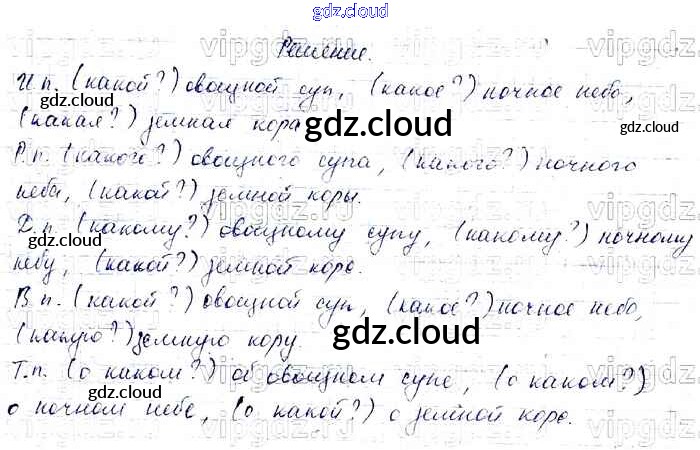 gdz.cloud
Решение.
И п. (какой?) овощной суп, (какое?) ночное небо,
(какая?) земная кора
Р.п. (какого?) овощного супа, (какого?) ночного
неба, (какой?) земной коры.
Д.п. (какому?) овощному супу, (какому?) ночному
небу, (какой?) земной коре.
В п. (какой?) овощной суп, (какое?) ночное небо,
(какую?) земную кору.
Т.п. (о каком?) об овощном супе, (о каком?)
о ночном небе, (о какой?) о земной коре.
gdz.cloud
gdz.cloud
gdz.cloud
gdz.cloud
gdz.cloud
gdz.cloud